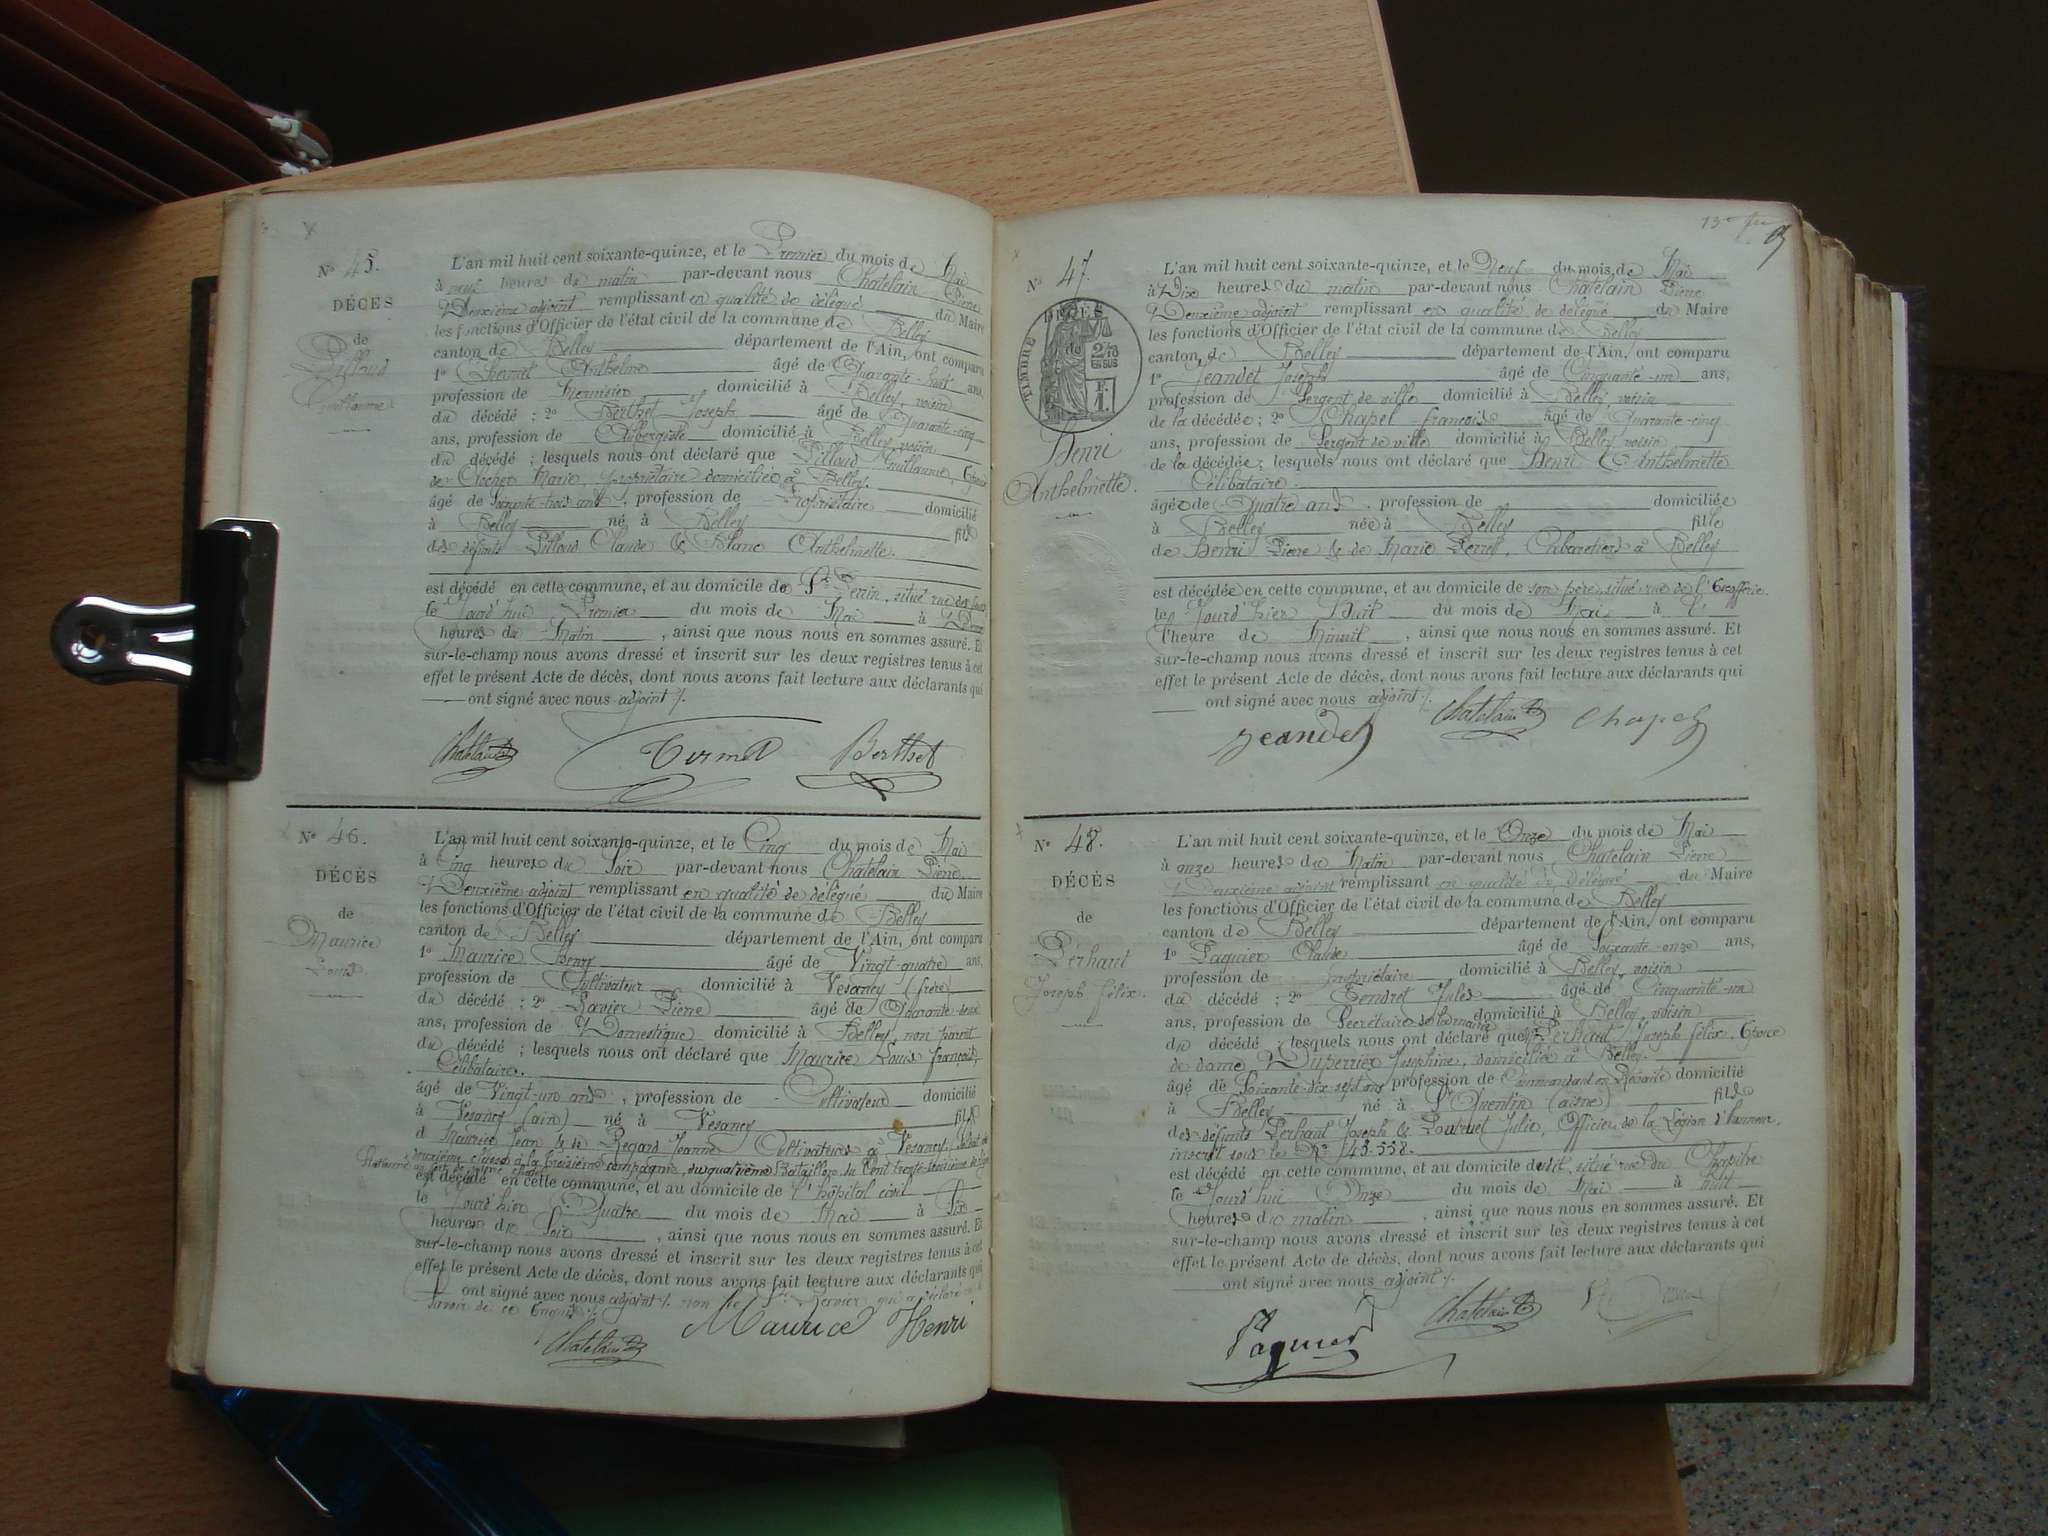 N° 45.
DÉCÈS
de
Pilloud
Guillaume
L'an mil huit cent soixante-quinze, et le Premier du mois de Mai
à neuf heures du matin par-devant nous Chatelain Pierre
Deuxième adjoint remplissant en qualité de délégué du Maire
les fonctions d'Officier de l'état civil de la commune de Belley
canton de Belley département de l'Ain, ont comparu
1° Anthelme âgé de Quarante-huit ans,
profession de Menuisier, domicilié à Belley, voisin
du décédé ; 2° Berthet Joseph âgé de Quarante-cinq
ans, profession de Aubergiste domicilié à Belley voisin
du décédé ; lesquels nous ont déclaré que Pilloud Guillaume, Epoux
de Crochet Marie, propriétaire domiciliée à Belley.
âgé de soixante-trois ans, profession de Propriétaire domicilié
à Belley né à Belley fils
des défunts Pilloud Claude & Blanc Anthelmette.
est décédé en cette commune, et au domicile de Sr Perrin, situé rue des
le Jourd'hui Premier du mois de Mai à Deux
heures du Matin, ainsi que nous nous en sommes assuré. Et
sur-le-champ nous avons dressé et inscrit sur les deux registres tenus à cet
effet le présent Acte de décès, dont nous avons fait lecture aux déclarants qui
ont signé avec nous adjoint /.
Chatelain Berthet
N° 46.
DÉCÈS
de
Maurice
Louis
L'an mil huit cent soixante-quinze, et le Cinq du mois de Mai
à Cinq heures du Soir par-devant nous Chatelain Pierre
Deuxième adjoint remplissant en qualité de délégué du Maire
les fonctions d'Officier de l'état civil de la commune de Belley
canton de Belley département de l'Ain, ont comparu
1° Maurice Henry âgé de Vingt-quatre ans,
profession de Cultivateur domicilié à Vesancy (frère)
du décédé ; 2° Pierre âgé de Quarante-deux
ans, profession de Domestique domicilié à Belley non parent
du décédé ; lesquels nous ont déclaré que Maurice Louis françois,
Célibataire.
âgé de Vingt-un ans, profession de Cultivateur domicilié
à Vesancy (ain) né à Vesancy fils
d Maurice Jean & de Regard Jeanne Cultivateurs à Vesancy, Soldat de
deuxième classe à la troisième compagnie, du quatrième Bataillon du Cent trente-troisième de ligne
est décédé en cette commune, et au domicile de l'hôpital civil
le Jourd'hier Quatre du mois de Mai à Six
heures du Soir, ainsi que nous nous en sommes assuré. Et
sur-le-champ nous avons dressé et inscrit sur les deux registres tenus à cet
effet le présent Acte de décès, dont nous avons fait lecture aux déclarants qui
ont signé avec nous adjoint /. non le Sr qui a déclaré ne
savoir de ce
Chatelain Maurice Henri
13e
N° 47.
DÉCÈS
de
TIMBRE
2/10 EN SUS
F. 1.
Henri
Anthelmette.
L'an mil huit cent soixante-quinze, et le Neuf du mois de Mai
à Dix heures du matin par-devant nous Chatelain Pierre
Deuxième adjoint remplissant en qualité de délégué du Maire
les fonctions d'Officier de l'état civil de la commune de Belley
canton de Belley département de l'Ain, ont comparu
1° Jeandet Joseph âgé de Cinquante-un ans,
profession de Sergent de ville domicilié à Belley voisin
de la décédée ; 2° Chapel françois âgé de Quarante-cinq
ans, profession de Sergent de ville domicilié à Belley voisin
de la décédée ; lesquels nous ont déclaré que Henri Anthelmette
Célibataire.
âgée de Quatre ans, profession de domiciliée
à Belley née à Belley fille
de Henri Pierre & de Marie Perret, Cabaretiers à Belley
est décédée en cette commune, et au domicile de son père, situé rue de l'
le Jourd'hier Huit du mois de Mai à
l'heure de Minuit, ainsi que nous nous en sommes assuré. Et
sur-le-champ nous avons dressé et inscrit sur les deux registres tenus à cet
effet le présent Acte de décès, dont nous avons fait lecture aux déclarants qui
ont signé avec nous adjoint /.
Jeandet Chatelain Chapel
N° 48.
DÉCÈS
de
Perhaut
Joseph félix.
L'an mil huit cent soixante-quinze, et le Onze du mois de Mai
à onze heures du Matin par-devant nous Chatelain Pierre
Deuxième adjoint remplissant en qualité de délégué du Maire
les fonctions d'Officier de l'état civil de la commune de Belley
canton de Belley département de l'Ain, ont comparu
1° Paguier Claude âgé de Soixante-onze ans,
profession de propriétaire, domicilié à Belley, voisin
du décédé ; 2° Tendret Jules âgé de Cinquante-un
ans, profession de Secrétaire de la mairie domicilié à Belley, voisin
du décédé ; lesquels nous ont déclaré que Perhaut Joseph félix, Epoux
de dame Duperrier Josephine, domiciliée à Belley.
âgé de Soixante-dix sept ans profession de Commandant en Retraite domicilié
à Belley né à St Quentin (aisne) fils
des défunts Perhaut Joseph & Julie, Officier de la Légion d'honneur,
inscrit sous le N° 145.558.
est décédé en cette commune, et au domicile dudit, situé rue du Chapitre
le Jourd'hui Onze du mois de Mai à huit
heures du matin, ainsi que nous nous en sommes assuré. Et
sur-le-champ nous avons dressé et inscrit sur les deux registres tenus à cet
effet le présent Acte de décès, dont nous avons fait lecture aux déclarants qui
ont signé avec nous adjoint /.
Paguier Chatelain